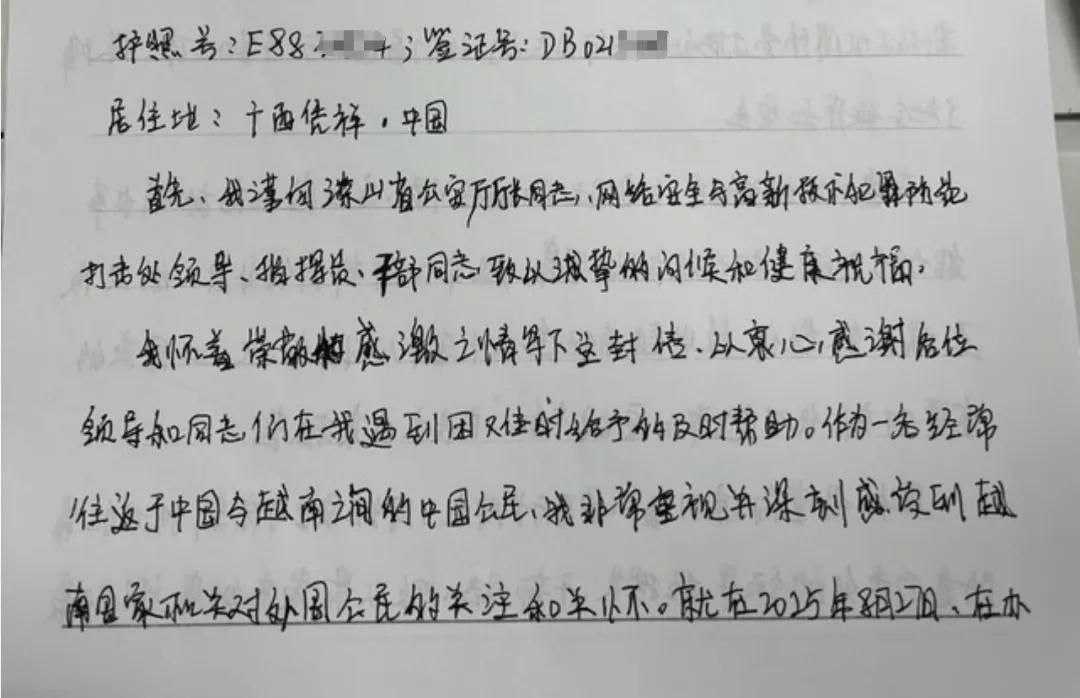 护照号:E882 4;签证号:DB021
居住地:广西凭祥,中国
首先、我谨向谅山省公安厅厅长同志、网络安全与高新技术犯罪预防
打击处领导、指挥员、干部同志致以诚挚的问候和健康祝福。
我怀着崇敬 感激之情写下这封信、以衷心感谢各位
领导和同志们在我遇到困难时给予的及时帮助。作为一名经常
往返于中国与越南之间的中国公民、我非常重视并深刻感受到越
南国家机关对外国公民的关注和关怀。就在2025年8月27日、在办